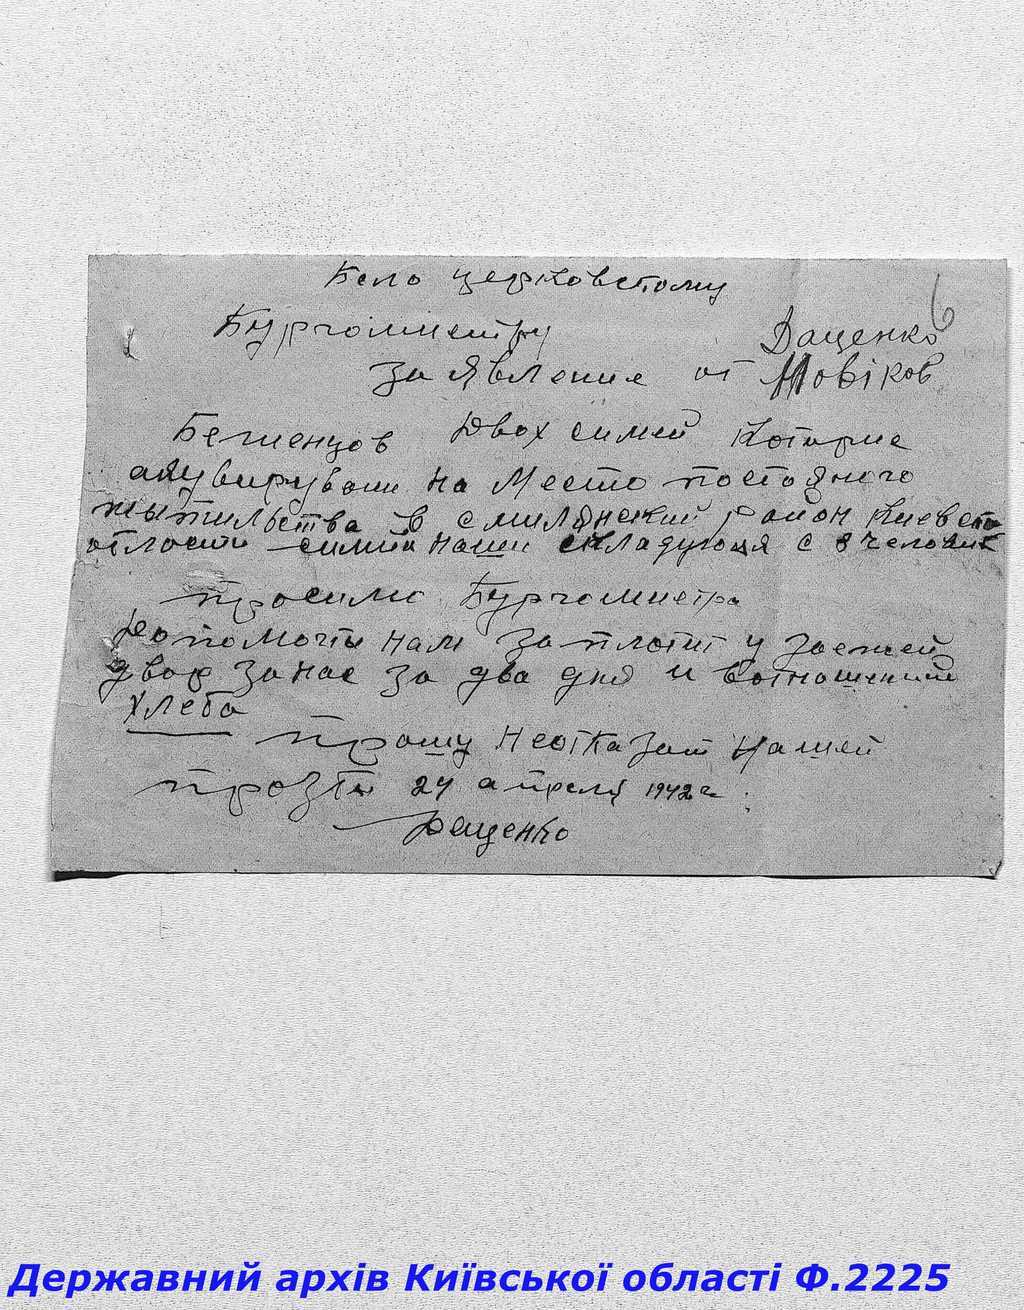 Бело церковстому
6
Бургомистру Даценко
заявления от Новіков
Беженцов Двох симей Которые
на Место постояного
жытильства в смилянский район Киевст
области симии наши складуюця с 8 человик
просимо Бургомистра
Допомогти нам заплотит у заежей
двор занас за два дня и вотношении
хлеба
прошу Неотказат Нашей
прозби 24 апреля 1942 г
Даценко
Державний архів Київської області Ф.2225